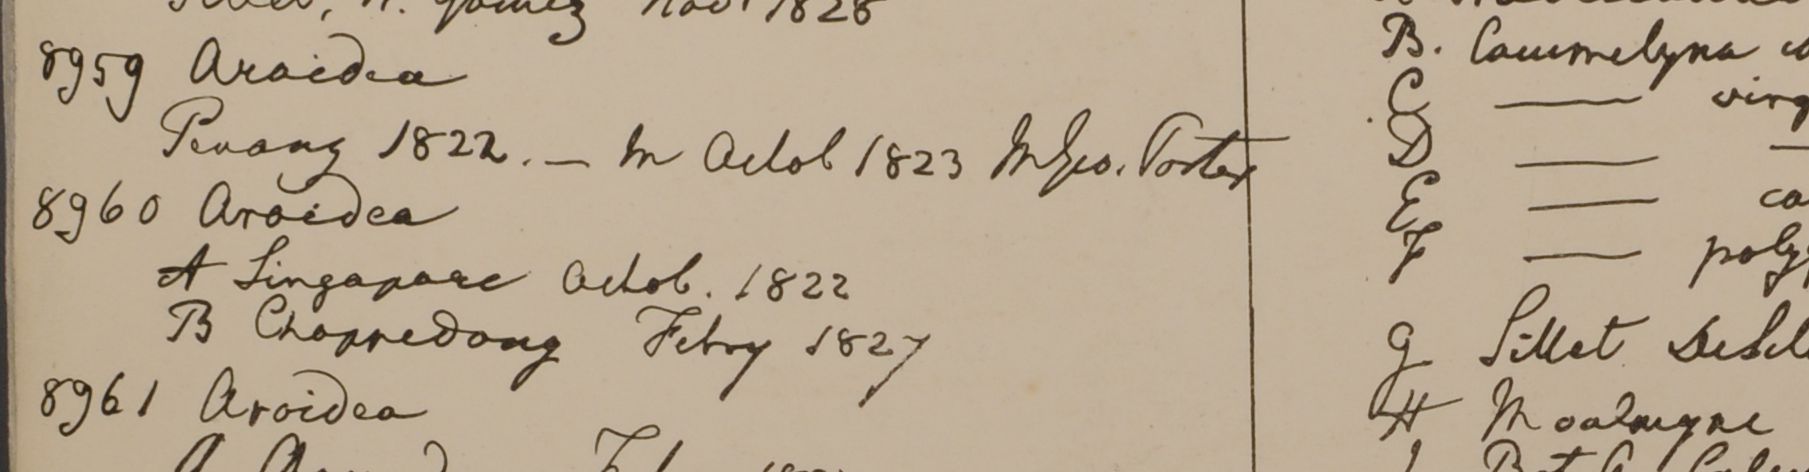 Gomez Nov 1828
8959 Aroidea
Penang 1822. — In Octob 1823 M Geo. Porter
8960 Aroidea
A Singapore Octob. 1822
B Choppedong Febry 1827
8961 Aroidea
B. Commelyna
C —
D —
E —
F — poly
G Sillet
H Moalmyne